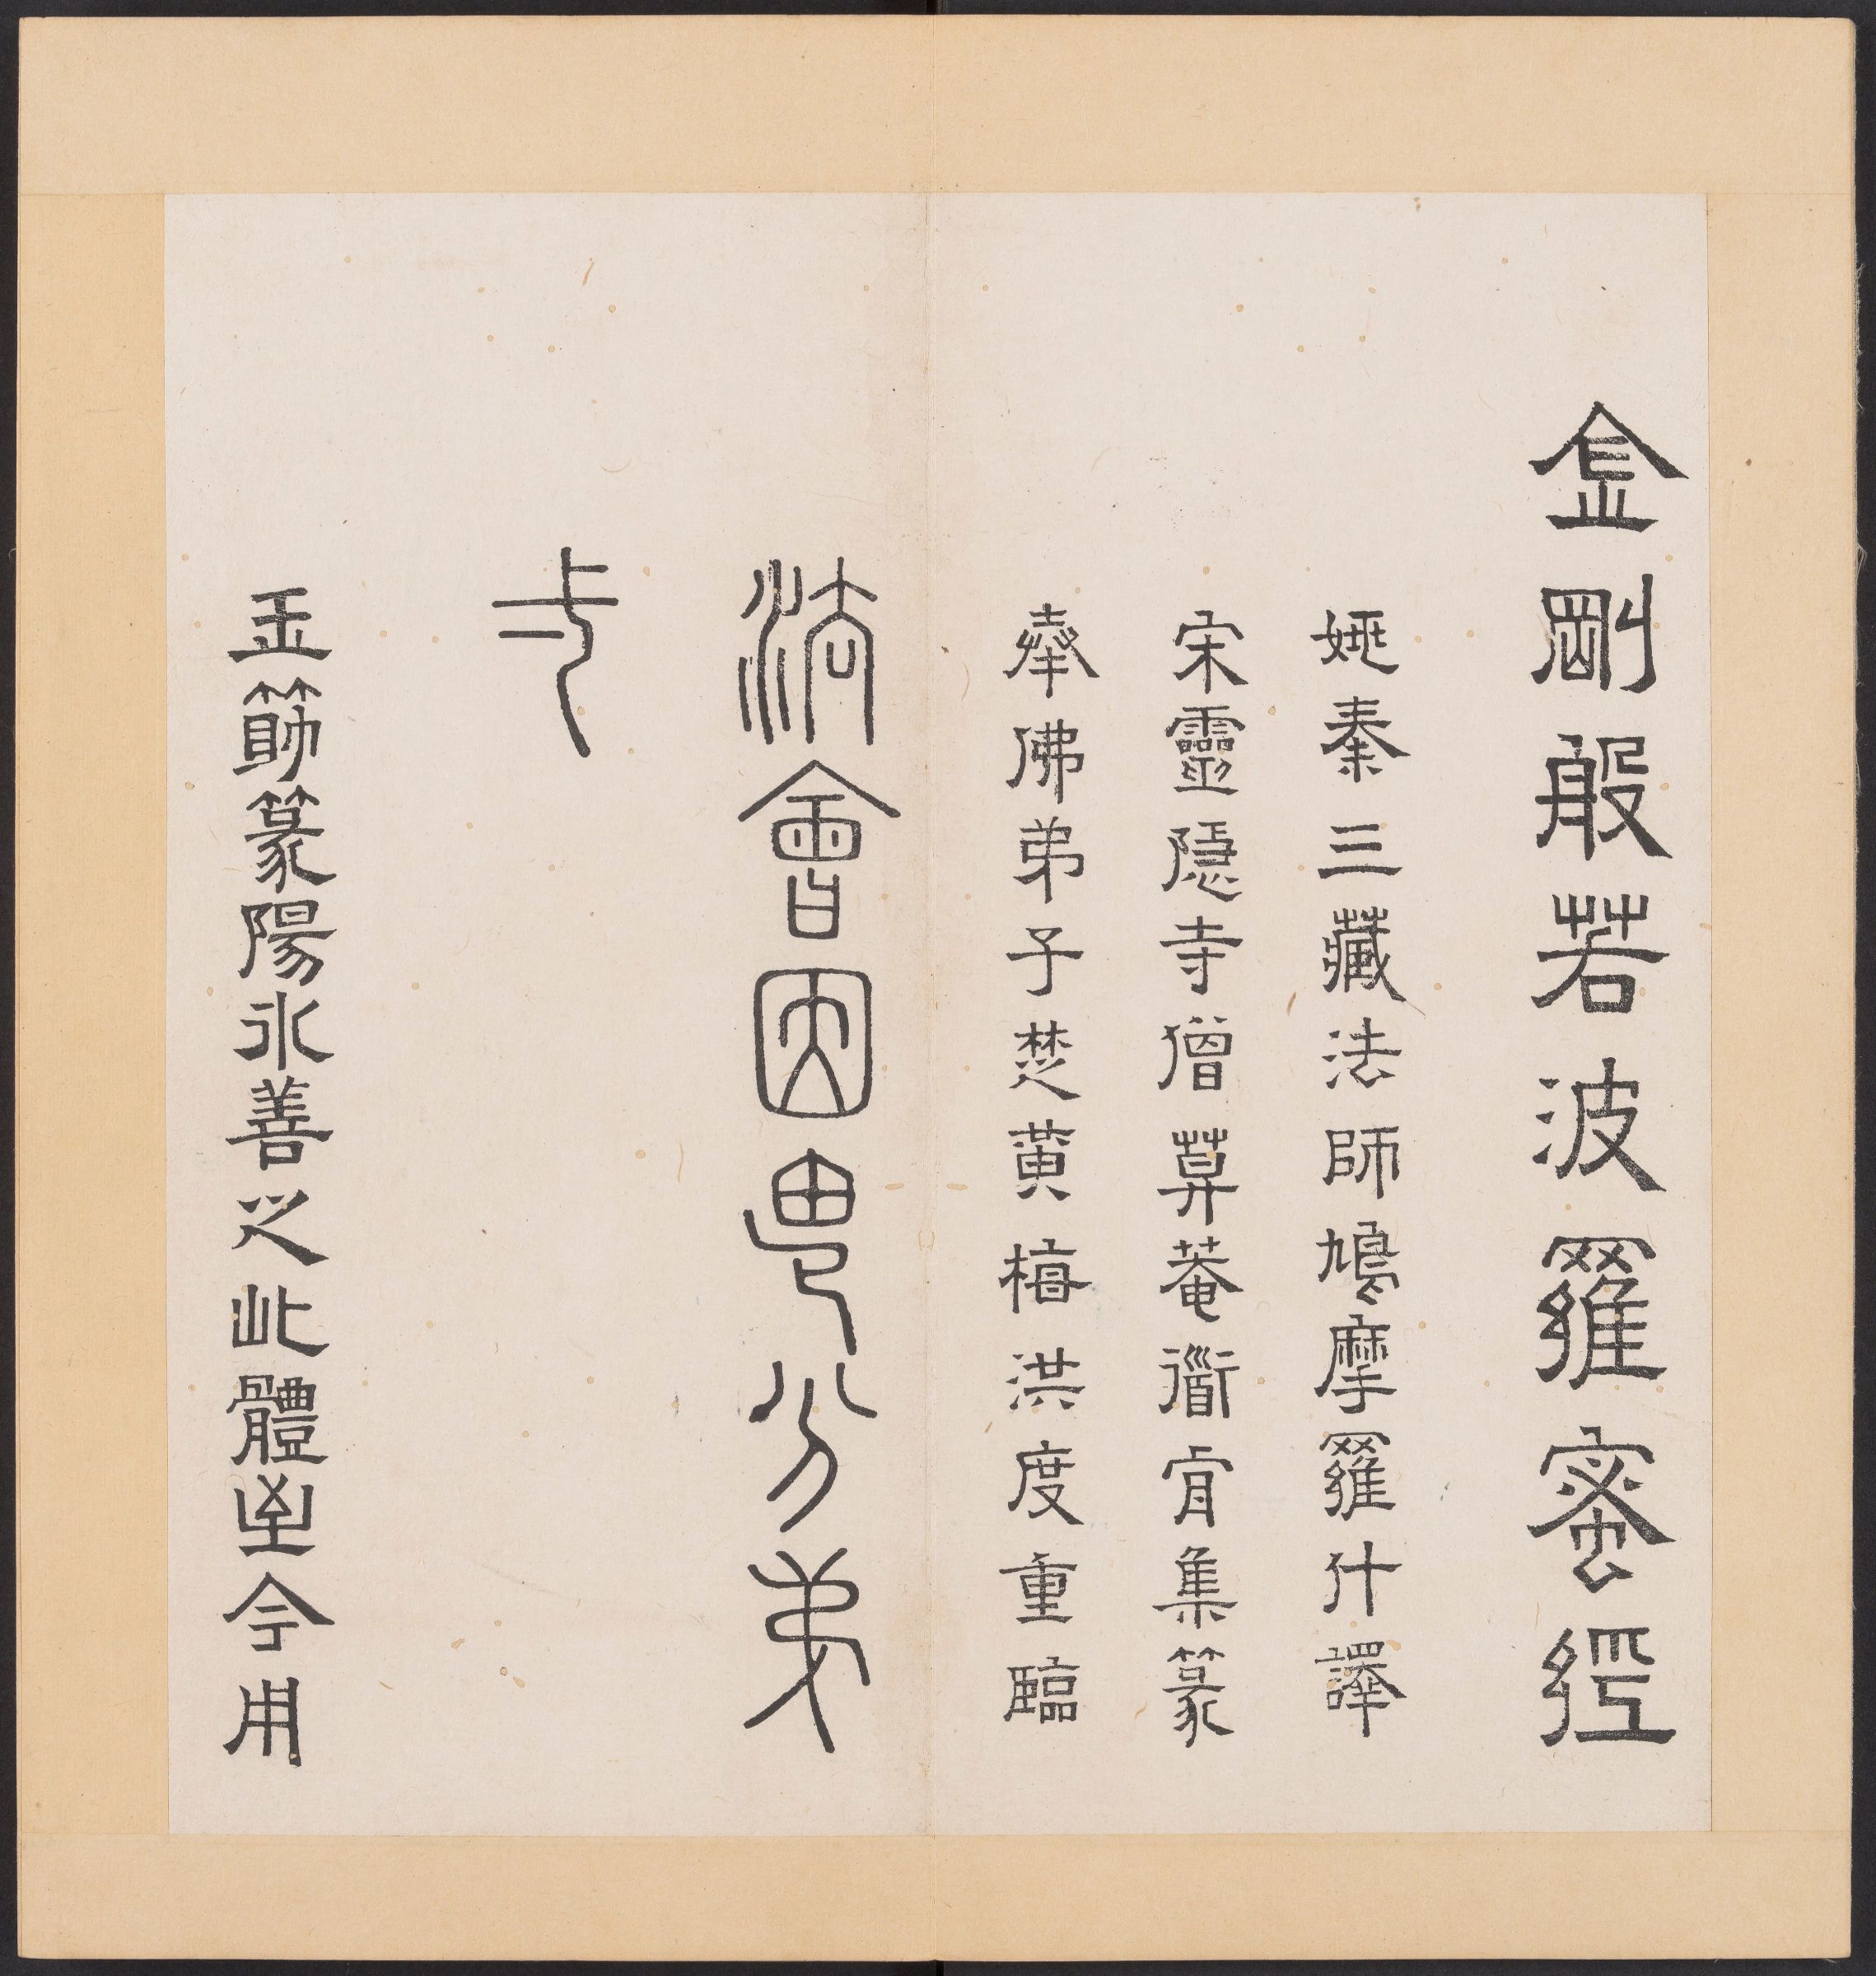 金剛般若波羅蜜經
姚秦三藏法師鳩摩羅什譯
宋靈隱寺僧莫菴道肯集篆
奉佛弟子楚黄梅洪度重臨
法會因由分弟
弌
玉筯篆陽氷善之此體至今用